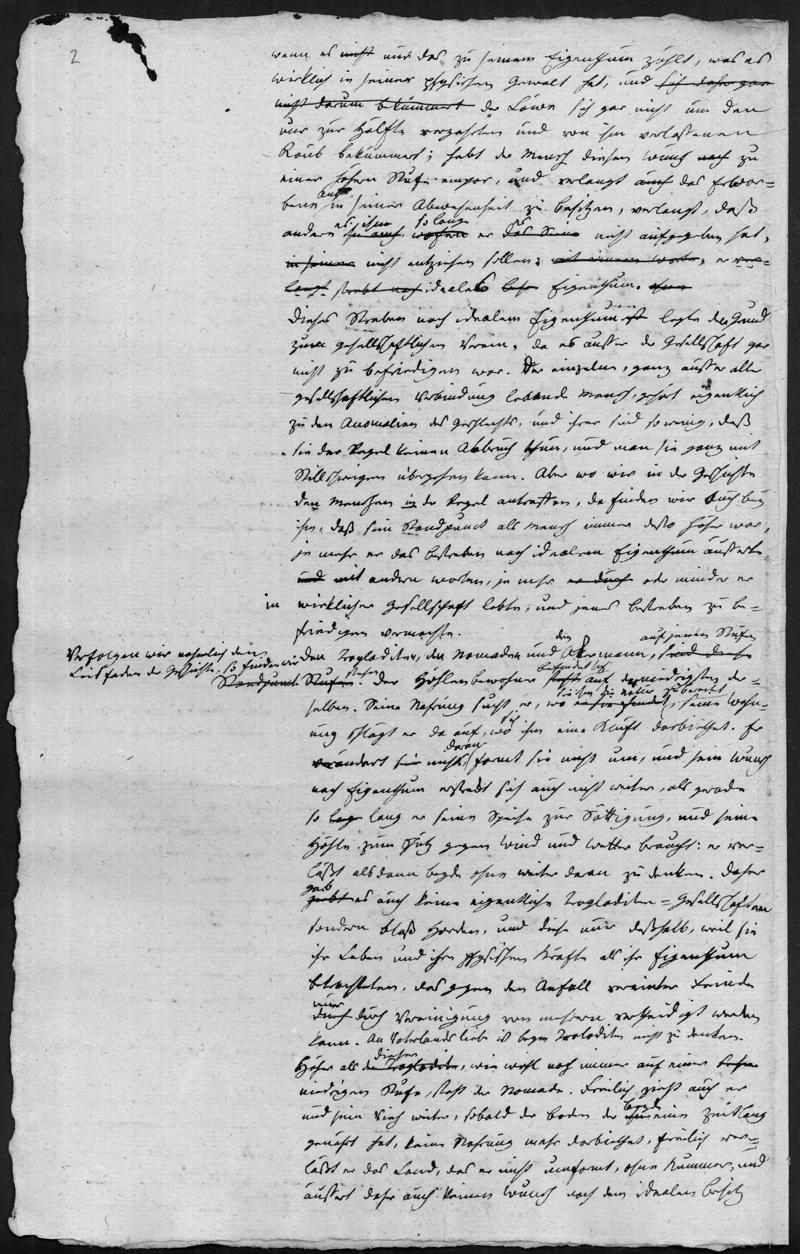 2
wenn es nicht nur das zu seinem Eigenthum zählt, was es
wirklich in seiner physischen Gewalt hat, und sich daher gar
nicht darum bekümmert der Löwe sich gar nicht um den
nur zur Hälfte verzehrten und von ihm verlassenen
Raub bekümmert; hebt der Mensch diesen Wunsch noch zu
einer höhern Stufe empor, und verlangt auch das Erwor=
bene auch in seiner Abwesenheit zu besitzen, verlangt, daß
andere es ihm so lange er es nicht aufgegeben hat,
nicht entziehen sollen; mit einem Worte, er ver=
langt strebt nach idealem Eigenthum.
Dieses Streben nach idealem Eigenthum legte den Grund
zum gesellschaftlichen Verein, da es ausser der Gesellschaft gar
nicht zu befriedigen war. Der einzelne, ganz ausser aller
gesellschaftlichen Verbindung lebende Mensch, gehört eigentlich
zu den Anomalien des Geschlechts, und ihrer sind so wenig, daß
sie der Regel keinen Abbruch thun, und man sie ganz mit
Stillschweigen übergehen kann. Aber wo wir in der Geschichte
den Menschen in der Regel antreffen, da finden wir auch bey
ihm, daß sein Standpunct als Mensch immer desto höher war,
je mehr er das Bestreben nach idealem Eigenthum äusserte
und mit andern Worten, je mehr oder minder er
in wirklicher Gesellschaft lebte, und jenes Bestreben zu be=
friedigen vermochte.
Verfolgen wir nehmlich den
Leitfaden der Geschichte, so finden wir
den Trogloditen, den Nomaden und den Akermann, auf jenen Stufen
Standpunct Stufen. Der Höhlenbewohner befindet sich auf der niedrigsten der=
selben. Seine Nahrung sucht er, wo sie ihm die Natur zubereitet, seine Wohn=
ung schlägt er da auf, wo sich ihm eine Kluft darbiethet. Er
verändert nichts daran, formt sie nicht um, und sein Wunsch
nach Eigenthum erstreckt sich auch nicht weiter, als gerade
so lang er seine Speise zur Sättigung, und seine
Höhle zum Schutz gegen Wind und Wetter braucht: er ver=
läßt alsdann beyde ohne weiter daran zu denken. Daher
gab es auch keine eigentliche Trogloditen=Gesellschaften
sondern bloß Horden, und diese nur deßhalb, weil sie
ihr Leben und ihre physischen Kräfte als ihr Eigenthum
betrachteten, das gegen den Anfall vereinter Feinde
nur durch Vereinigung von mehrern vertheidigt werden
kann. An Vaterlandsliebe ist beym Trogloditen nicht zu denken.
Höher als dieser Troglodite, wie wohl noch immer auf einer
niedrigen Stufe, steht der Nomade. Freilich zieht auch er
und sein Vieh weiter, sobald der Boden der beyde eine Zeitlang
genährt hat, keine Nahrung mehr darbiethet, freilich ver=
läßt er das Land, das er nicht umformt, ohne Kummer, und
äussert daher auch keinen Wunsch nach dem idealen Besitz